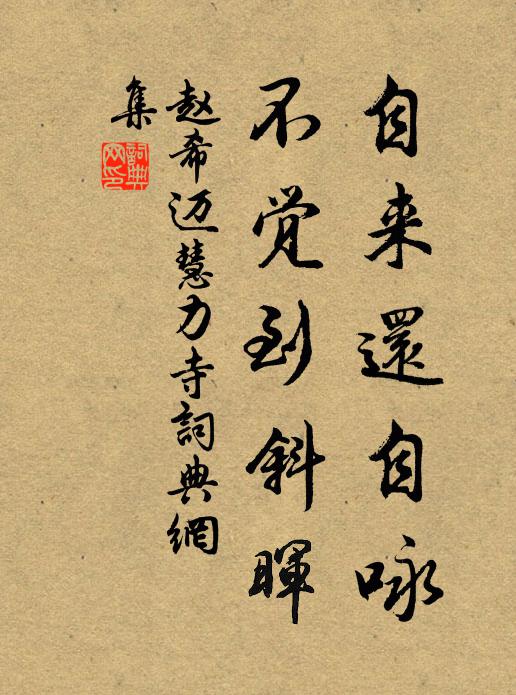 自来還自咏
不觉到斜暉
赵希迈慧力寺詞典網
集
詞典
网印